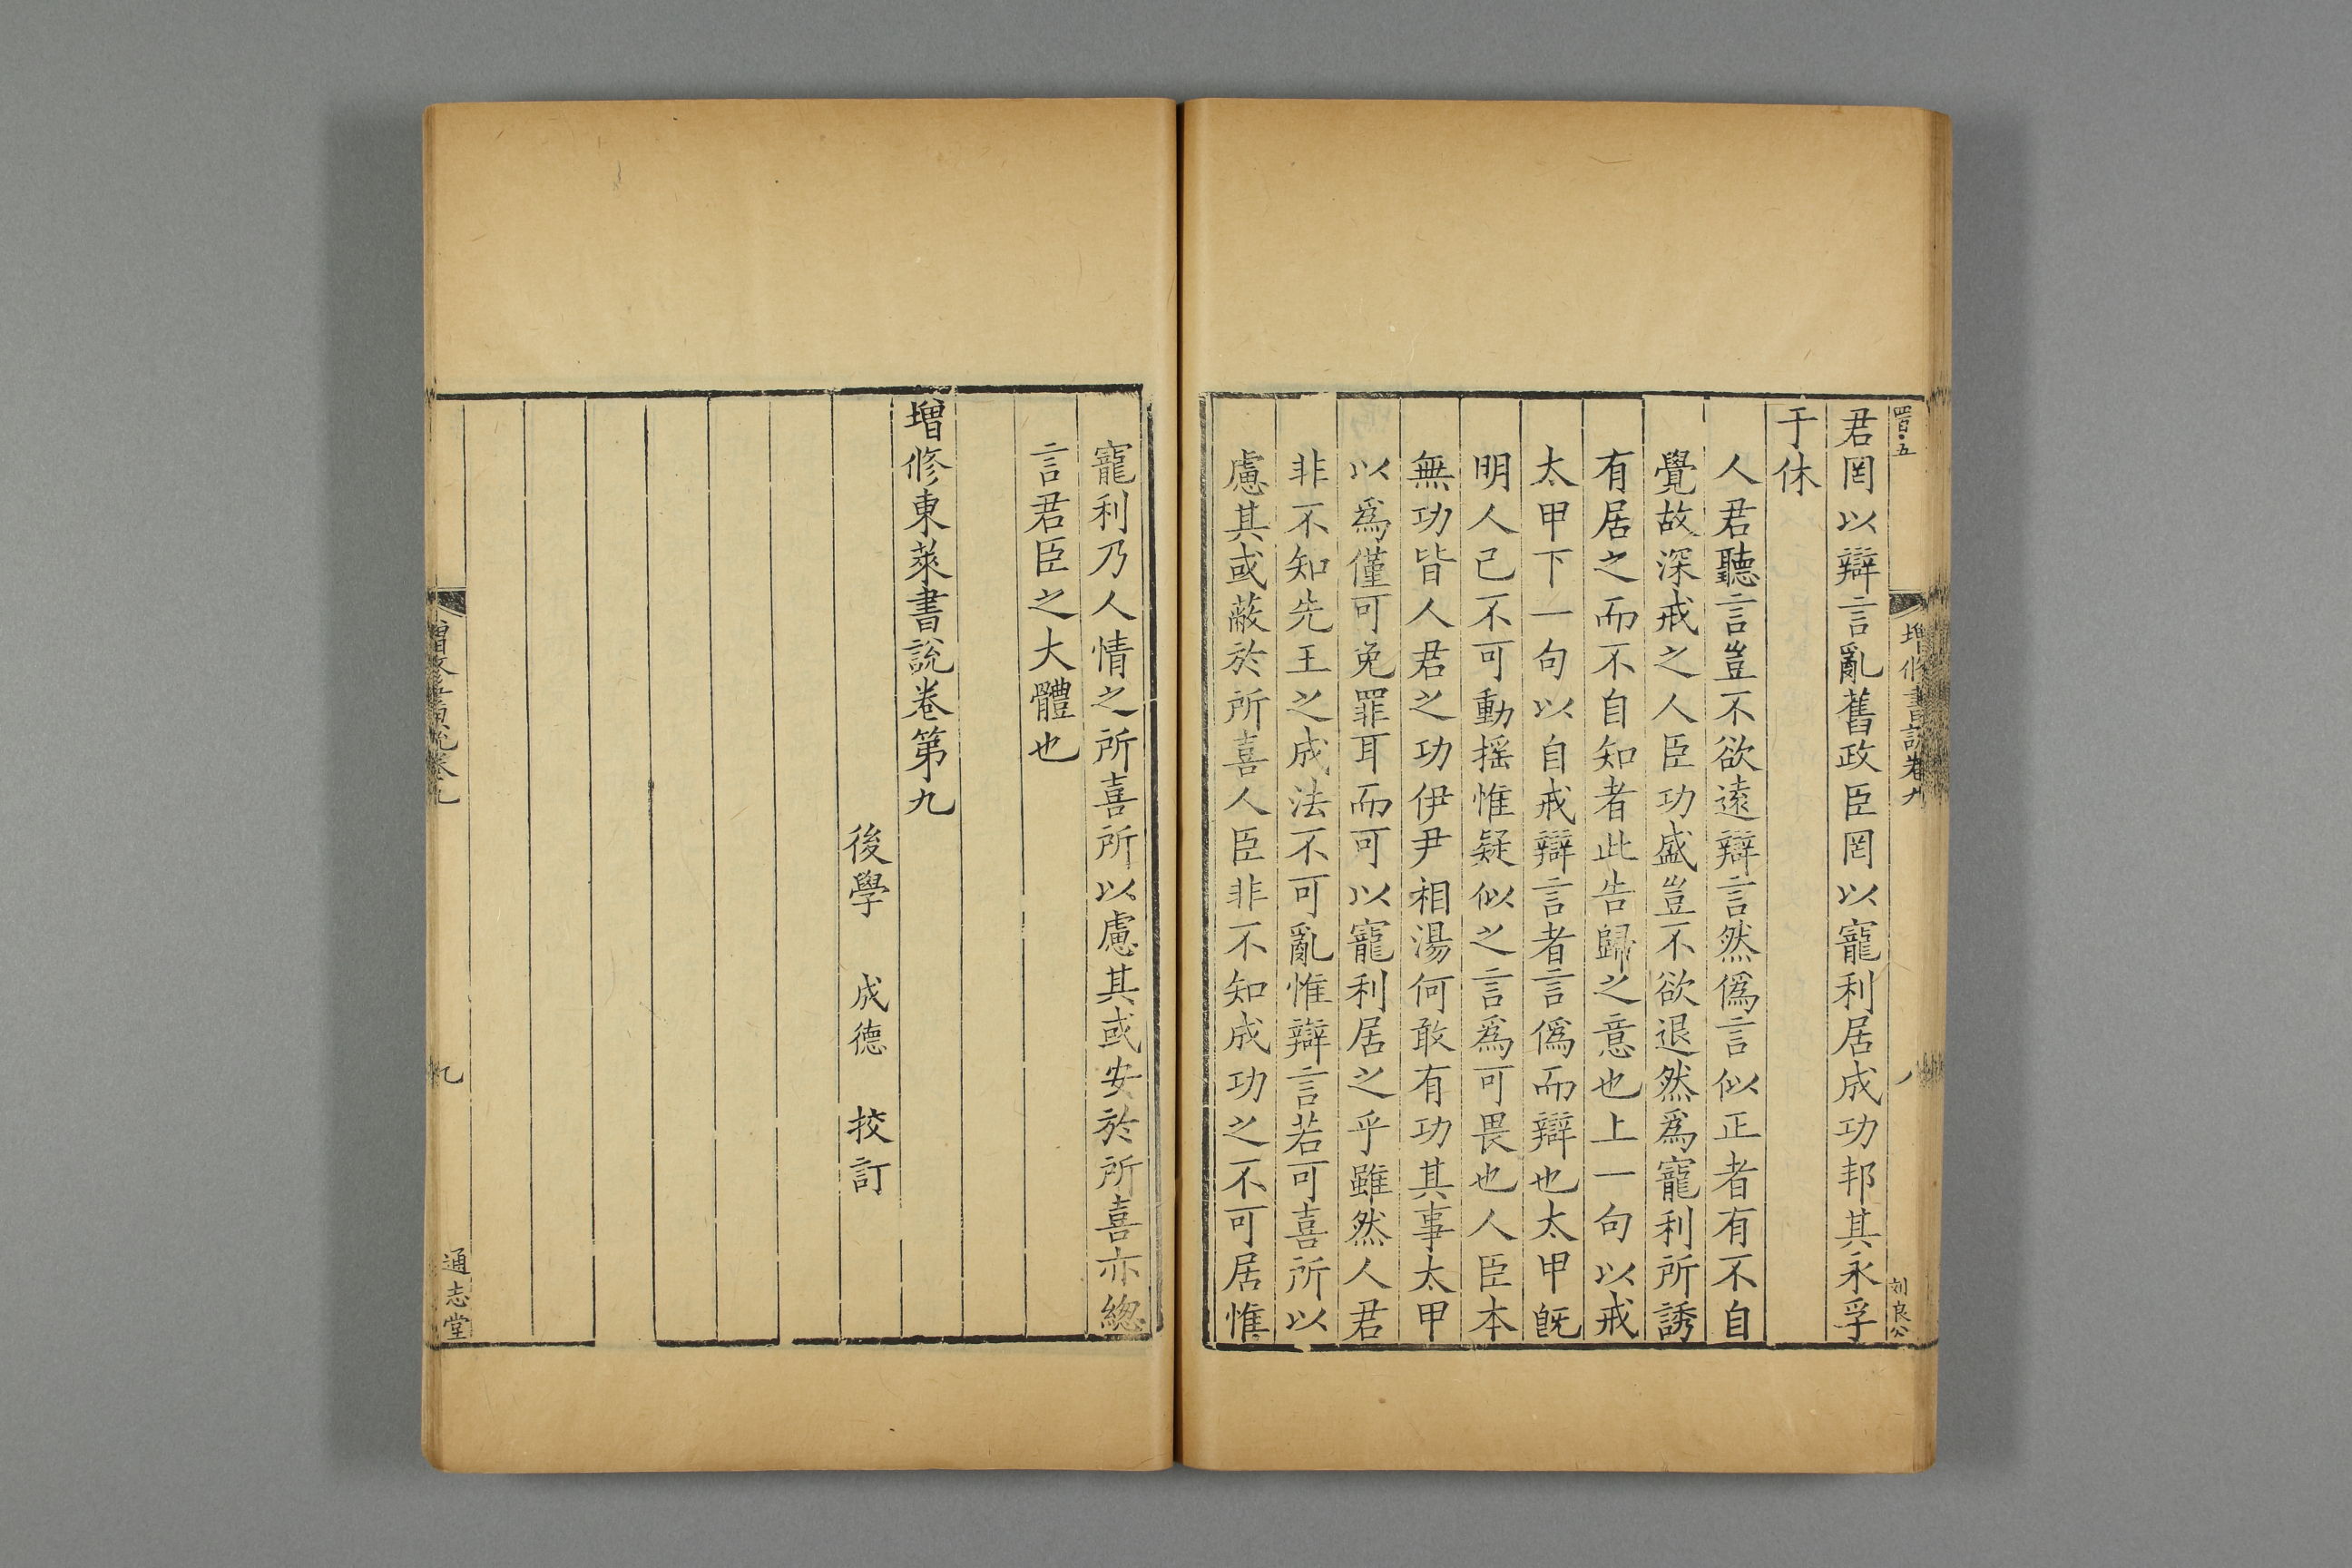 君罔以辯言亂舊政臣罔以寵利居成功邦其永孚
于休
人君聽言豈不欲遠辯言然僞言似正者有不自
覺故深戒之人臣功盛豈不欲退然爲寵利所誘
有居之而不自知者此告歸之意也上一句以戒
太甲下一句以自戒辯言者言僞而辯也太甲旣
明人已不可動搖惟疑似之言爲可畏也人臣本
無功皆人君之功伊尹相湯何敢有功其事太甲
以爲僅可免罪耳而可以寵利居之乎雖然人君
非不知先王之成法不可亂惟辯言若可喜所以
慮其或蔽於所喜人臣非不知成功之不可居惟
寵利乃人情之所喜所以慮其或安於所喜亦總
言君臣之大體也
增修東萊書說卷第九
後學 成德 挍訂
通志堂